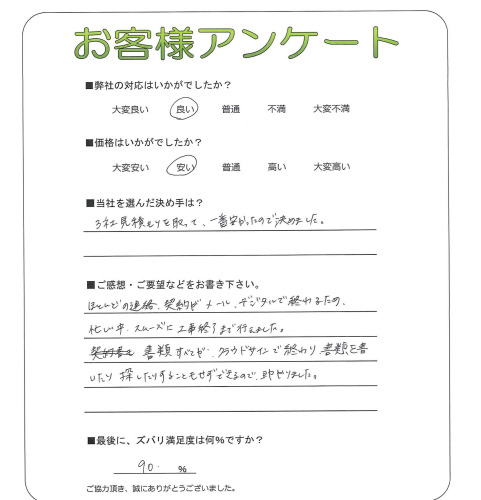 お客様アンケート
■弊社の対応はいかがでしたか？
大変良い 良い 普通 不満 大変不満
■価格はいかがでしたか？
大変安い 安い 普通 高い 大変高い
■当社を選んだ決め手は？
3社見積もりを取って、一番安かったので決めました。
■ご感想・ご要望などをお書き下さい。
ほとんどの連絡、契約がメール、デジタルで終わるため、
忙い中、スムーズに工事終了まで行えました。
書類すべてが、クラウドサインで終わり、書類を書
いたり探したりすることもせずできるので、助かりました。
■最後に、ズバリ満足度は何%ですか？
90. %
ご協力頂き、誠にありがとうございました。